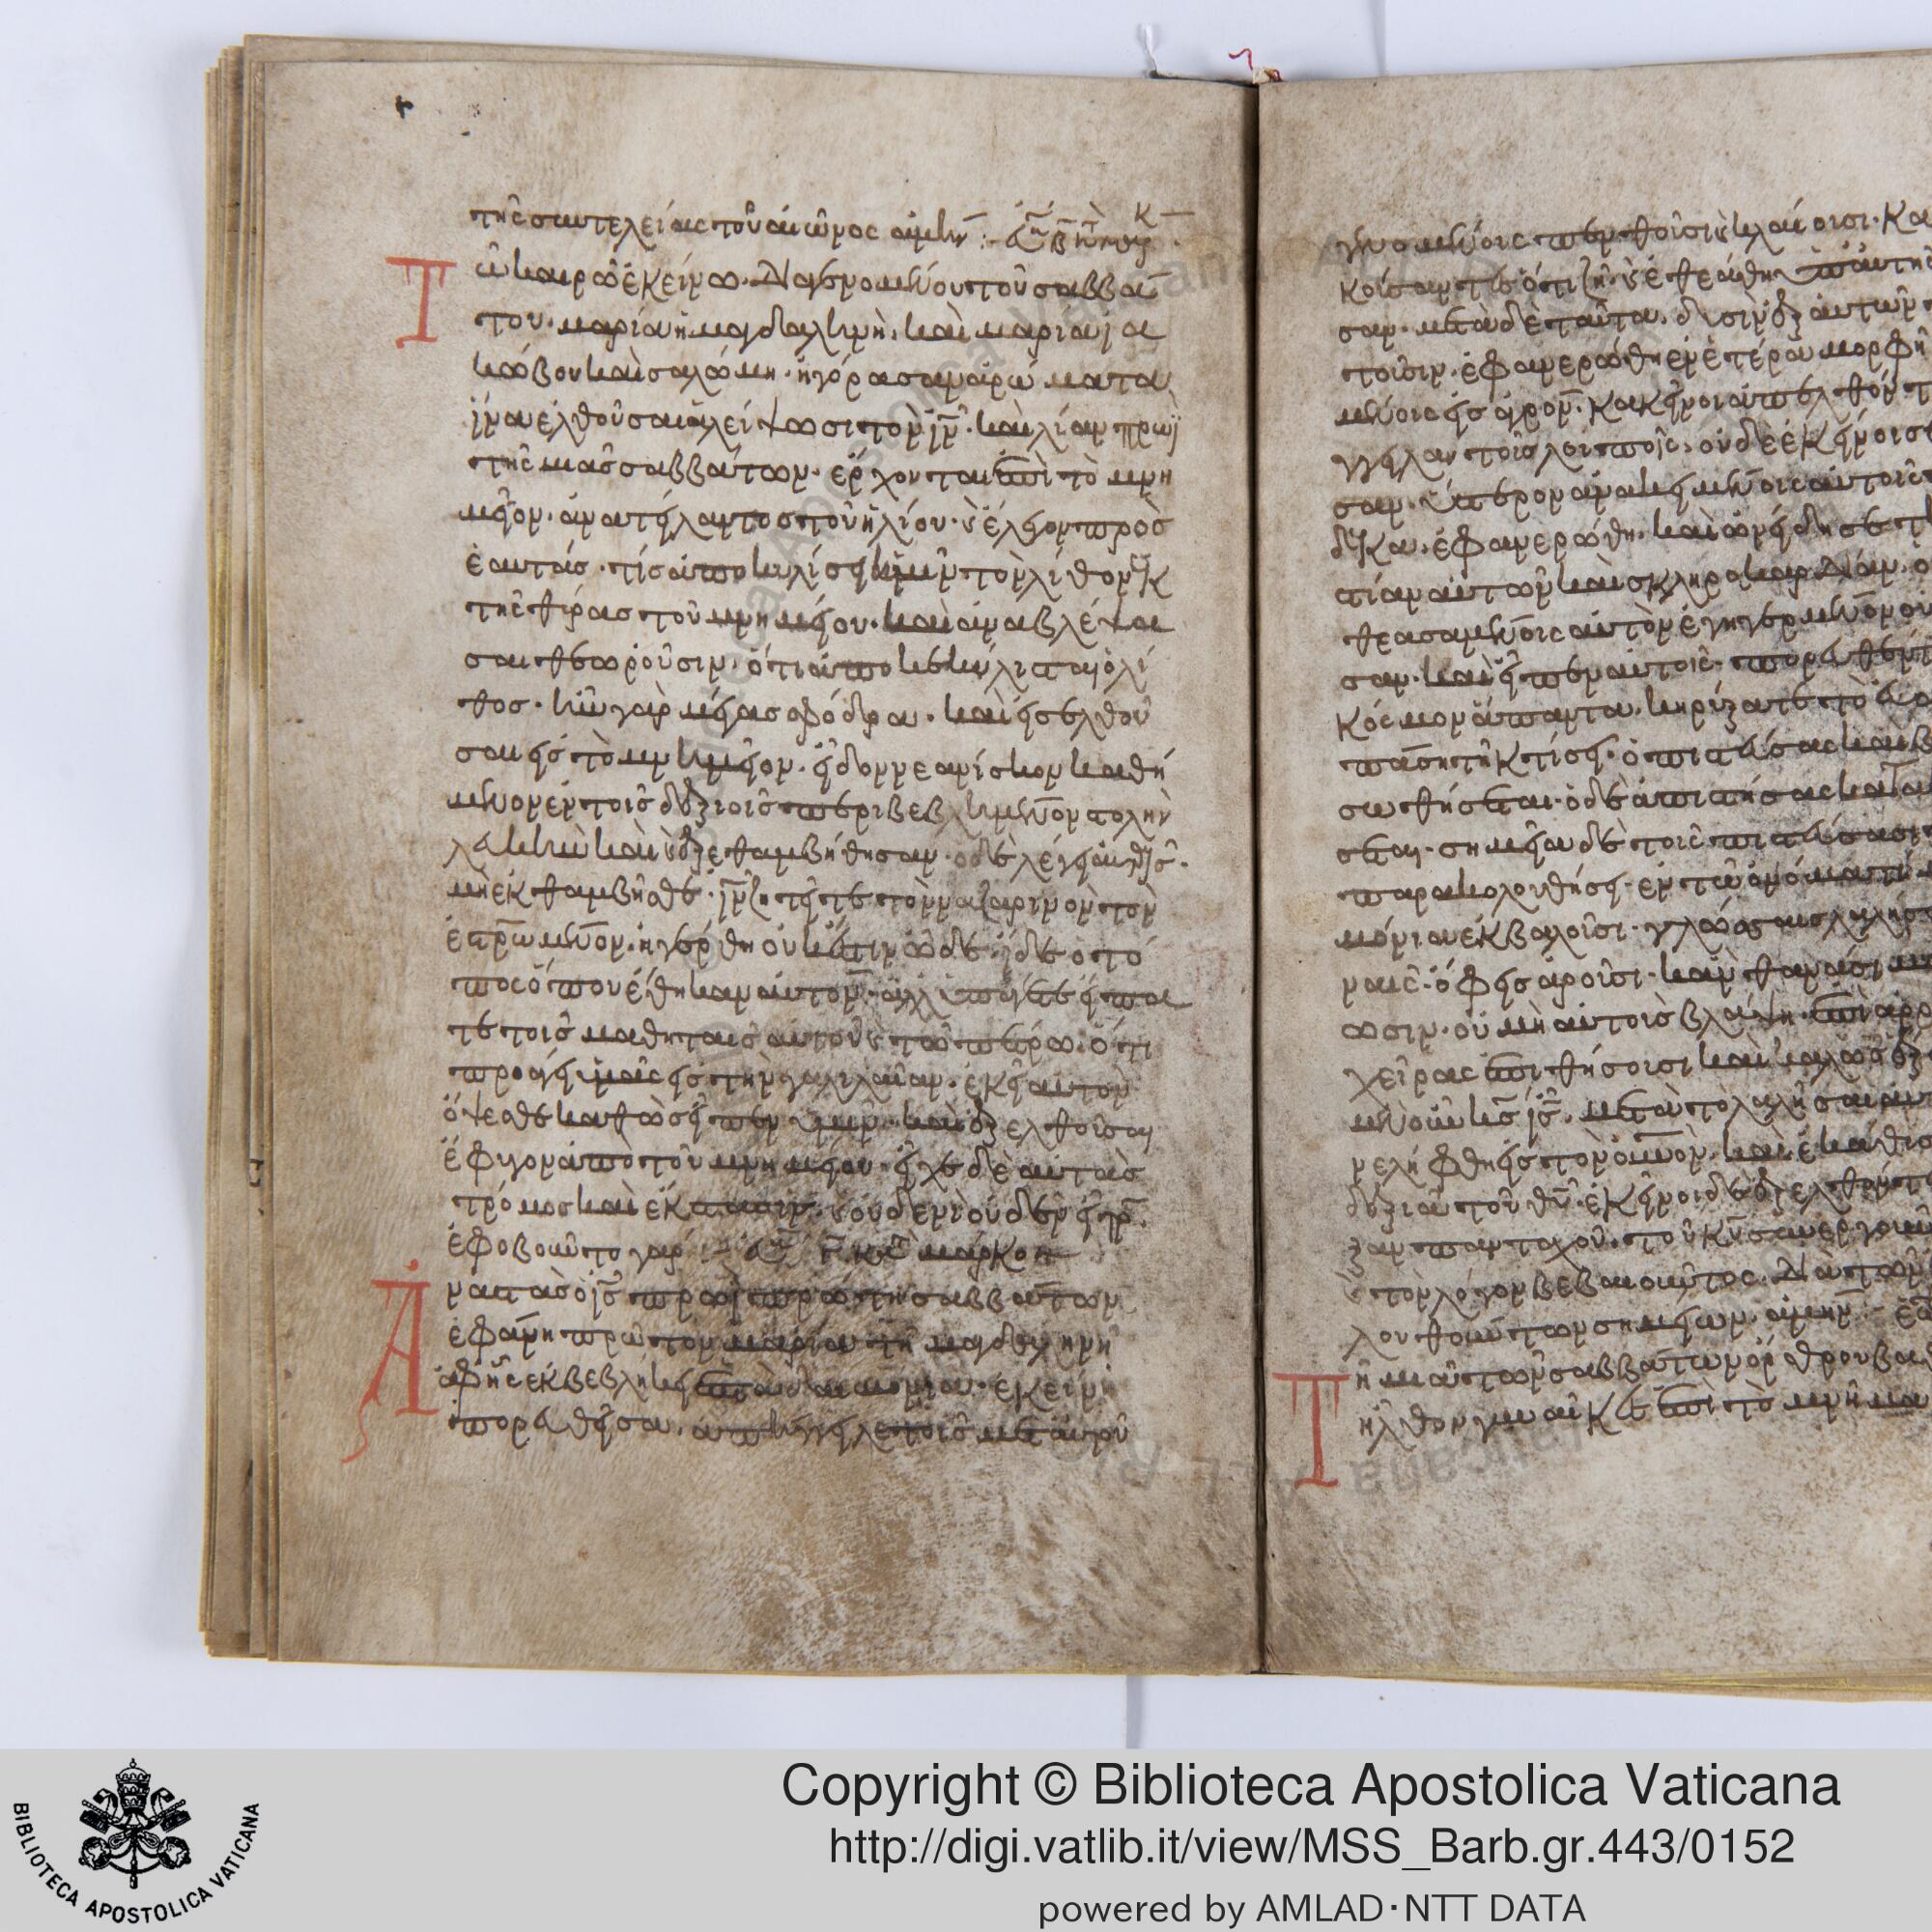 της συντελείας τοῦ αἰῶνος ἀμήν
Τ
ῶ καιρῶ ἐκείνω· διαγενομένου τοῦ σαββά
του· μαρία ἡ μαγδαληνὴ· καὶ μαρία ἰα
κώβου καὶ σαλώμη· ἠγόρασαν ἀρώματα
ἵνα ἐλθοῦσαι ἀλείψωσι τὸν ἰν̄· καὶ λίαν πρωῒ
τῆς μιᾶς σαββάτων· ἔρχονται ἐπὶ τὸ μνη
μεῖον· ἀνατείλαντος τοῦ ἡλίου· κ ἔλεγον πρὸς
ἑαυτάς· τίς ἀποκυλίσει ἡμῖν τὸν λίθον ἐκ
τῆς θύρας τοῦ μνημείου· καὶ ἀναβλέψα
σαι θεωροῦσιν· ὅτι ἀποκεκύλισται ὁ λί
θος· ἦν γὰρ μέγας σφόδρα· καὶ εἰσελθοῦ
σαι εἰς τὸ μνημεῖον· εἶδον νεανίσκον καθή
μενον ἐν τοῖς δεξιοῖς περιβεβλημένον στολὴν
λευκὴν καὶ ἐξεθαμβήθησαν· ὁ δὲ λέγει αὐταῖς·
μὴ ἐκθαμβεῖσθε· ἰν̄ ζητεῖτε τὸν ναζαρινὸν τὸν
ἐστρωμένον· ἠγέρθη οὐκ ἔστιν ὧδε· ἴδε ὁ τό
πος ὅπου ἔθηκαν αὐτόν· ἀλλ ὑπάγετε εἴπα
τε τοῖς μαθηταῖς αὐτοῦ κ τῶ πέτρω· ὅτι
προάγει ὑμᾶς εἰς τὴν γαλιλαίαν· ἐκεῖ αὐτὸν
ὄψεσθε καθὼς εἶπεν ὑμῖν· καὶ ἐξελθοῦσαι
ἔφυγον ἀπὸ τοῦ μνημείου· εἶχε δὲ αὐτὰς
τρόμος καὶ ἔκστασις· κ οὐδενὶ οὐδὲν εἶπον·
ἐφοβοῦντο γάρ μάρκον
Ἀ
ναστὰς ὁ ἰς̄ πρωῒ πρώτη σαββάτων
ἐφάνη πρῶτον μαρία τῆ μαγδαληνῆ
ἀφ ἧς ἐκβεβλήκει ἑπτὰ δαιμόνια· ἐκείνη
πορευθεῖσα· ἀπήγγειλε τοῖς μετ αὐτοῦ
γενομένοις πενθοῦσι κ κλαίουσι· κα
κοῖσαντες ὅτι ζῆ· κ ἐθεάθη ὑπ αὐτῆς
σαν· μετὰ δὲ ταῦτα· δυσὶν ἐξ αὐτῶν
τοῦσιν· ἐφανερώθη ἐν ἑτέρα μορφῆ
μένοις εἰς ἀγρόν· κακεῖνοι ἀπελθόντ
γγειλαν τοῖς λοιποῖς· οὐδὲ ἐκείνοις
σαν· ὕστερον ἀνακειμένοις αὐτοῖς
δεκα· ἐφανερώθη· καὶ ὠνείδησε τ
στίαν αὐτῶν καὶ σκληροκαρδίαν· ὁ
θεασαμένοις αὐτὸν ἐγηγερμένον οὐ
σαν· καὶ εἶπεν αὐτοῖς· πορευθέντ
κόσμον ἅπαντα· κηρύξατε τὸ εὐα
πάση τῆ κτίσει· ὁ πιστεύσας καὶ β
σωθήσεται· ὁ δὲ ἀπιστήσας κατα
σεται· σημεῖα δὲ τοῖς πιστεύσασι
παρακολουθήσει· ἐν τῶ ὀνόματί
μόνια ἐκβαλοῦσι· γλώσσαις λαλήσ
ναῖς· ὄφεις ἀροῦσι· κἀν θανάσι
ωσιν· οὐ μὴ αὐτοὺς βλάψη· ἐπὶ ἀρρ
χεῖρας ἐπιθήσουσι καὶ καλῶς ἕξ
μὲν οὖν κς̄ ἰς̄· μετὰ τὸ λαλῆσαι αὐ
νελήφθη εἰς τὸν οὐνον· καὶ ἐκάθισ
δεξιᾶ τοῦ θῦ· ἐκεῖνοι δὲ ἐξελθόντ
ξαν πανταχοῦ· τοῦ κῦ συνεργοῦν
κ τὸν λόγον βεβαιοῦντος· διὰ τῶν
λουθούντων σημείων· ἀμήν
Τ
ῆ μιᾶ τῶν σαββάτων ὄρθρου βα
ἦλθον γυναῖκες ἐπὶ τὸ μνῆμα
Copyright © Biblioteca Apostolica Vaticana
http://digi.vatlib.it/view/MSS_Barb.gr.443/0152
powered by AMLAD·NTT DATA
BIBLIOTECA APOSTOLICA VATICANA